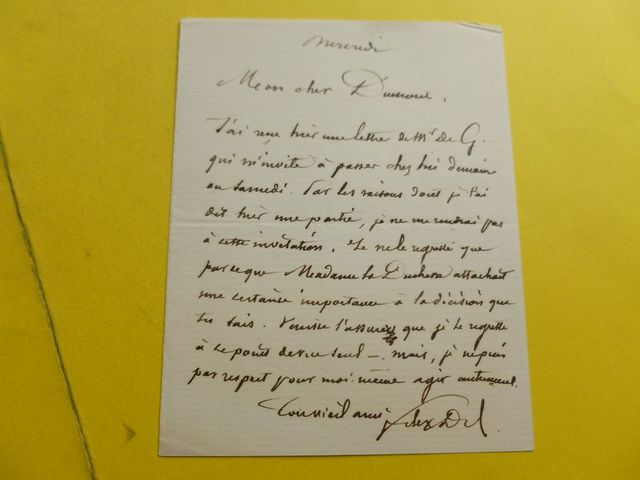 Mercredi
Mon cher Dumont,
J'ai reçu hier une lettre de Mr De G.
qui m'invite à passer chez lui demain
ou samedi. Par les raisons dont je t'ai
dit hier une partie, je ne me rendrai pas
à cette invitation. Je ne le regrette que
parce que Madame la Duchesse attachait
une certaine importance à la décision que
tu sais. Veuille l'assurer que je le regrette
à ce point de vue seul — mais, je ne puis
pas respect pour moi-même agir autrement.
Ton vieil ami